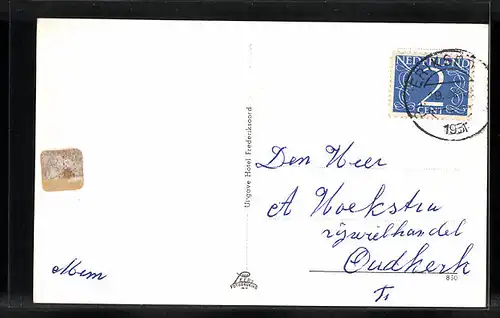 NEDERLAND
2
CENT
195
Uitgave Hotel Frederiksoord
Den Heer
A Hoekstra
rijwielhandel
Oudkerk
Mem
Fr
850